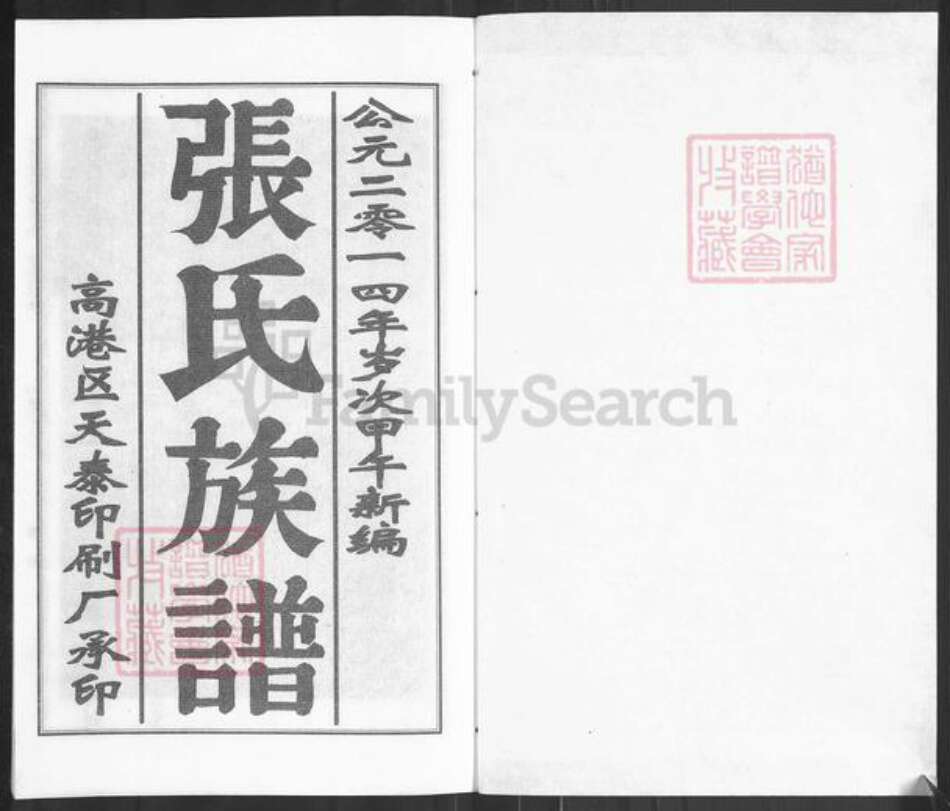 猶他家
譜學會
收藏
公元二零一四年岁次甲午新编
張氏族譜
高港区天泰印刷厂承印
猶他家
譜學會
收藏
FamilySearch